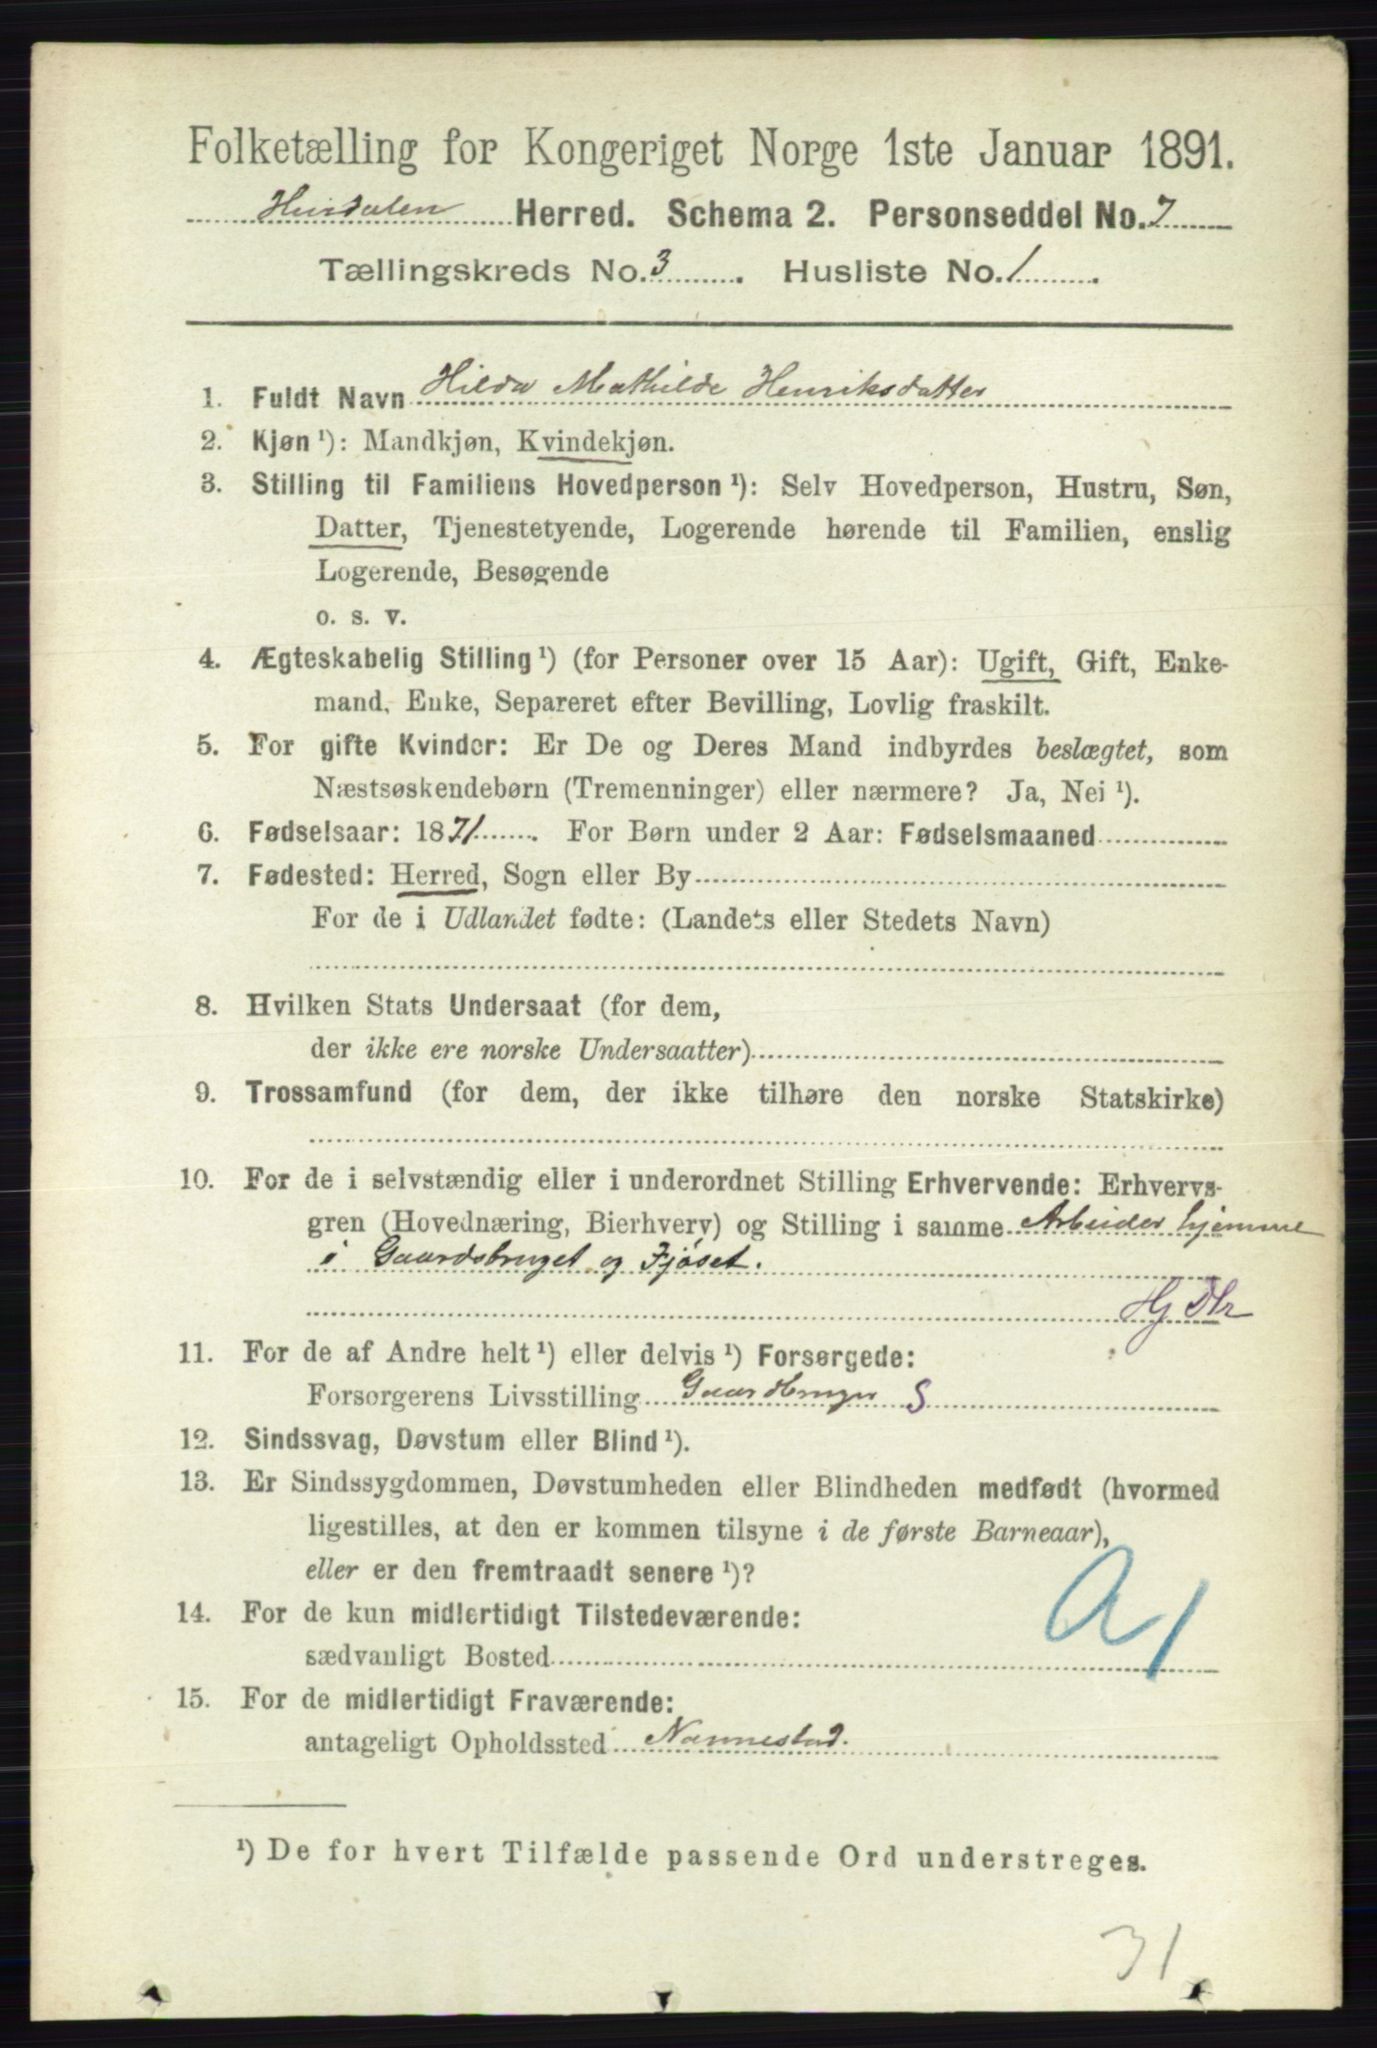 Folketælling for Kongeriget Norge 1ste Januar 1891.
Hurdalen Herred. Schema 2. Personseddel No. 7
Tællingskreds No. 3. Husliste No. 1.
1. Fuldt Navn Hilda Mathilde Henriksdatter
2. Kjøn ¹): Mandkjøn, Kvindekjøn.
3. Stilling til Familiens Hovedperson ¹): Selv Hovedperson, Hustru, Søn,
Datter, Tjenestetyende, Logerende hørende til Familien, enslig
Logerende, Besøgende
o. s. v.
4. Ægteskabelig Stilling ¹) (for Personer over 15 Aar): Ugift, Gift, Enke-
mand, Enke, Separeret efter Bevilling, Lovlig fraskilt.
5. For gifte Kvinder: Er De og Deres Mand indbyrdes beslægtet, som
Næstsøskendebørn (Tremenninger) eller nærmere? Ja, Nei ¹).
6. Fødselsaar: 1871. For Børn under 2 Aar: Fødselsmaaned
7. Fødested: Herred, Sogn eller By
For de i Udlandet fødte: (Landets eller Stedets Navn)
8. Hvilken Stats Undersaat (for dem,
der ikke ere norske Undersaatter)
9. Trossamfund (for dem, der ikke tilhøre den norske Statskirke)
10. For de i selvstændig eller i underordnet Stilling Erhvervende: Erhvervs-
gren (Hovednæring, Bierhverv) og Stilling i samme Arbeider hjemme
i Gaardsbruget og Fjøset.
Hj Dtr
11. For de af Andre helt ¹) eller delvis ¹) Forsørgede:
Forsørgerens Livsstilling Gaardbruger S
12. Sindssvag, Døvstum eller Blind ¹).
13. Er Sindssygdommen, Døvstumheden eller Blindheden medfødt (hvormed
ligestilles, at den er kommen tilsyne i de første Barneaar),
eller er den fremtraadt senere ¹)?
A1
14. For de kun midlertidigt Tilstedeværende:
sædvanligt Bosted
15. For de midlertidigt Fraværende:
antageligt Opholdssted Nannestad.
¹) De for hvert Tilfælde passende Ord understreges.
31